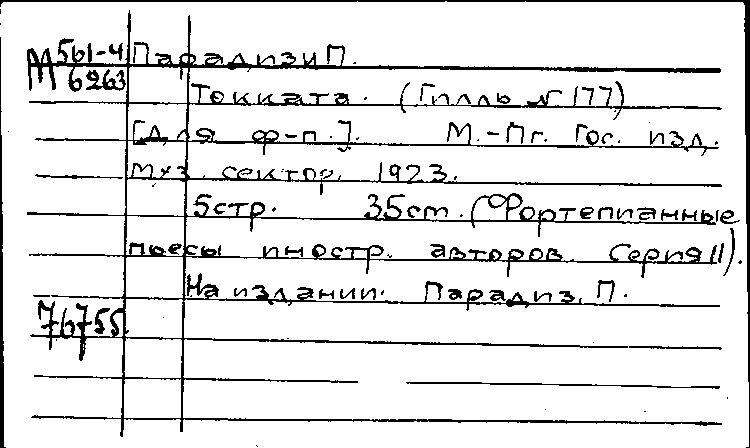 М 561-4 Парадизи П.
6263
Токката. (Гилль № 177)
[Для ф-п.]. М.-Пг. Гос. изд.
муз. сектор. 1923.
5стр. 35см. (Фортепианные
пьесы иностр. авторов. Серия II).
На издании: Парадиз, П.
76755.